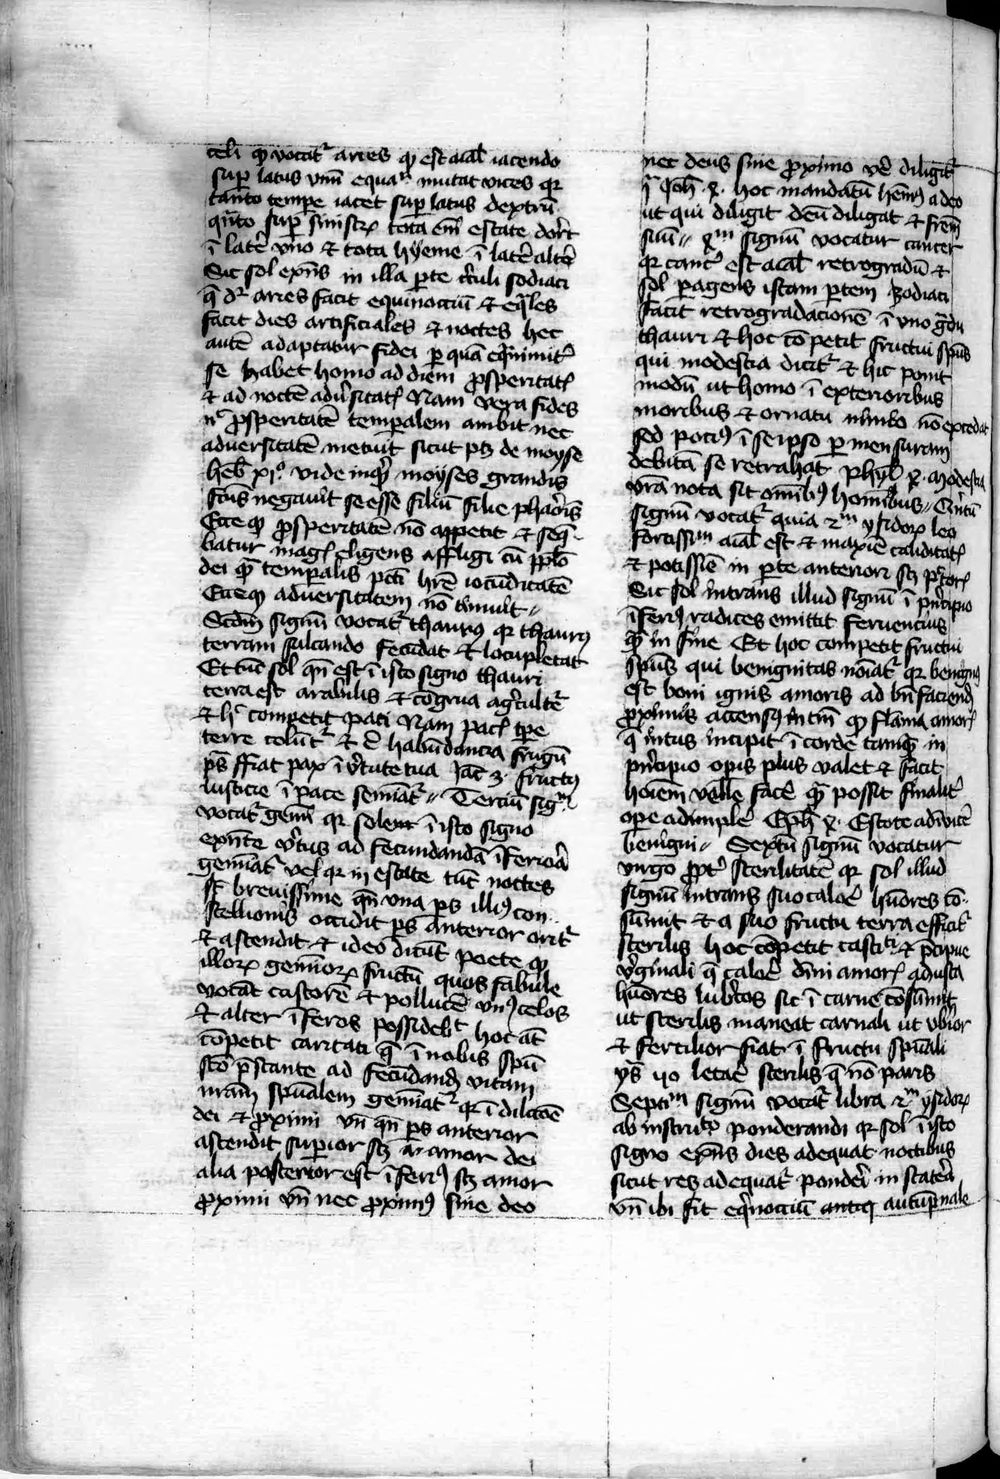 celi qͥ vocatʳ aries qͥ est aīal iacendo
suꝑ latus vnū equaᵐ mutat vices qꝛ
tanto tempe iacet suꝑ latus dextrū
qñto suꝑ sinistꝝ tota em̄ estate dorͥt
ī latẽ vno et tota hyeme ī latẽ altẽ
Sic sol exñs in illa ꝑte circuli zodiaci
q̄ dʳ aries facit equinoctiū et eq̄les
facit dies artificiales et noctes hec
autē adaptatur fidei ꝑ quā eqͥnimitʳ
se habet homo ad diem ꝓsperitatꝭ
et ad noctē adūsitatꝭ Nam vera fides
nͨ ꝓsperitatē temꝑalem ambit nec
aduersitatē metuit sicut ptꝫ de moyse
heb̄ xjº vide inqͥ moyses grandis
fc̄us negauit se esse filiū filie pharõis
Ecce qͥ ꝓsperitatē nō appetit et seqͥ
batur magꝭ eligens affligi cū pplō
dei qͣ temꝑalis pcti hr̄e iocūditatē
Ecce qͥ aduersitatem nō timuit //
Scdm̄ signū vocatʳ thaurꝰ qꝛ thaurꝰ
terram sulcando fecūdat et locupletat
Et tūc sol qn̄ est ī isto signo thauri
terra est arabilis et cōgrua agͥcultẽ
et hͨ competit paci Nam pacꝭ tꝑe
terre colūtʳ et ē habūdancia frugū
ps̄ ffiat pax ī vͥtute tua Jac̄ 3· fructꝰ
iusticie ī pace seīatʳ // Terciū sigᵐ
vocatʳ gemī qꝛ solem ī isto signo
exn̄te vͥtus ad fecundandā īferiora
gemīatʳ vel qꝛ in estate tūc noctes
sͭ breuissime qn̄ vna ꝑs illiꝰ con
stellionis occidit ꝑs anterior oritʳ
et ascendit et ideo dicūt poete qͥ
illoꝝ gemīoꝝ fructū quos fabule
vocāt castorē et pollucē vnꝰ celos
et alter īferos possidebt hoc aūt
cōpetit caritati q̄ ī nobis spū
scō p̄stante ad fecūdandā vitam
nr̄am spūalem gemīatʳ qꝛ ī dilc̄oē
dei et ꝓximi vn̄ qn̄ ꝑs anterior
ascendit suꝑior scꝫ amor dei
alia posterior est īferiꝰ scꝫ amor
ꝓximi vn̄ nec ꝓximꝰ sine deo
nec deus sine ꝓximo vē diligitʳ
hoc mandatū hēmꝰ a deo
ut qui diligit deū diligat et frēm
suū // signū vocatur cancer
qꝛ cancʳ est aīal retrogradū et
sol ꝑagens istam ꝑtem zodiaci
facit retrogradacionē ī vno gͣdu
thauri et hoc cōpetit fructui spūs
qui modestia dicitʳ et hic ponit
modū ut homo ī exterioribus
moribus et ornatu nimio nō excedat
sed pociꝰ ī seipso ꝑ mensuram
debitā se retrahat phyl̄ modestia
vr̄a nota sit oīnibꝰ hominibus // Qͥntū
signū vocatʳ quia ysidoꝝ leo
fortissiᵐ aīal est et maxīe caliditatꝭ
et potissīe in ꝑte anteriori scꝫ pͨtorꝭ
Sic sol intrans illud signū ī pͥncipio
īferiꝰ radices emittit feruencius
qͣ in fine Et hoc competit fructui
spūs qui benignitas nōīatʳ qꝛ benignꝰ
est boni ignis amoris ad bn̄ faciend
ꝓximis accensꝰ intm̄ qͥ flāma amorꝭ
q̄ intus incipit ī corde tamqͣ in
pͥncipio opis plus valet et facit
hoīem velle facẽ qͣ possit finalitʳ
ope adimplẽ Eph̄ Estote adīuicē
benigni // Sextū signū vocatur
virgo ꝓptʳ sterilitatē qꝛ sol illud
signū intrans suo caloẽ hūores cō
sumit et a suo fructu terra efficitʳ
sterilis hoc cōpetit castitͥ et pͨcipue
vͥginali q̄ caloẽ dini amorꝭ adusta
hūores lubricos sic ī carne cōsumit
ut sterilis maneat carnali ut vbͥior
et fertilior fiat ī fructu spūali
ys̄ letaẽ sterilis q̄ nō paris
Septiᵐ signū vocatʳ libra ysidoꝝ
ab instruͭo ponderandi qꝛ sol ī isto
signo exñs dies adequat noctibus
sicut res adequatʳ ponderͥ in statera
vn̄ ibi fit eqͥnoctiū autūpnale